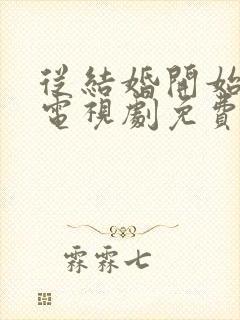 從結婚開始
電視劇免費
霖霖七